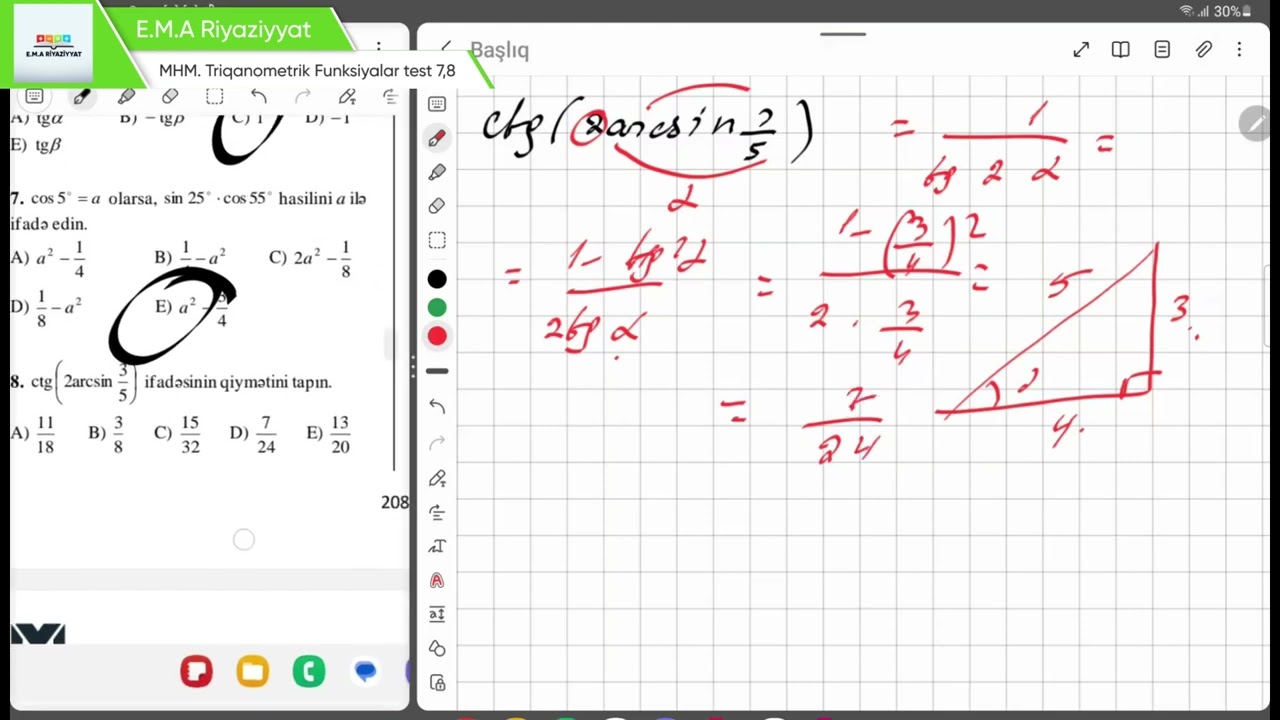 E.M.A Riyaziyyat
E.M.A RİYAZİYYAT
MHM. Triqanometrik Funksiyalar test 7,8
30%
Başlıq
A) tgα B) − tgβ C) 1 D) −1
E) tgβ
7. cos 5° = a olarsa, sin 25° · cos 55° hasilini a ilə
ifadə edin.
A) a² − 1/4 B) 1/4 − a² C) 2a² − 1/8
D) 1/8 − a² E) a² − 3/4
8. ctg(2arcsin 3/5) ifadəsinin qiymətini tapın.
A) 11/18 B) 3/8 C) 15/32 D) 7/24 E) 13/20
208
ctg(2arcsin 3/5) = 1/(tg 2α) =
α
= (1 − tg²α)/(2tgα) = (1 − (3/4)²)/(2 · 3/4) =
= 7/24
5
3
α
4